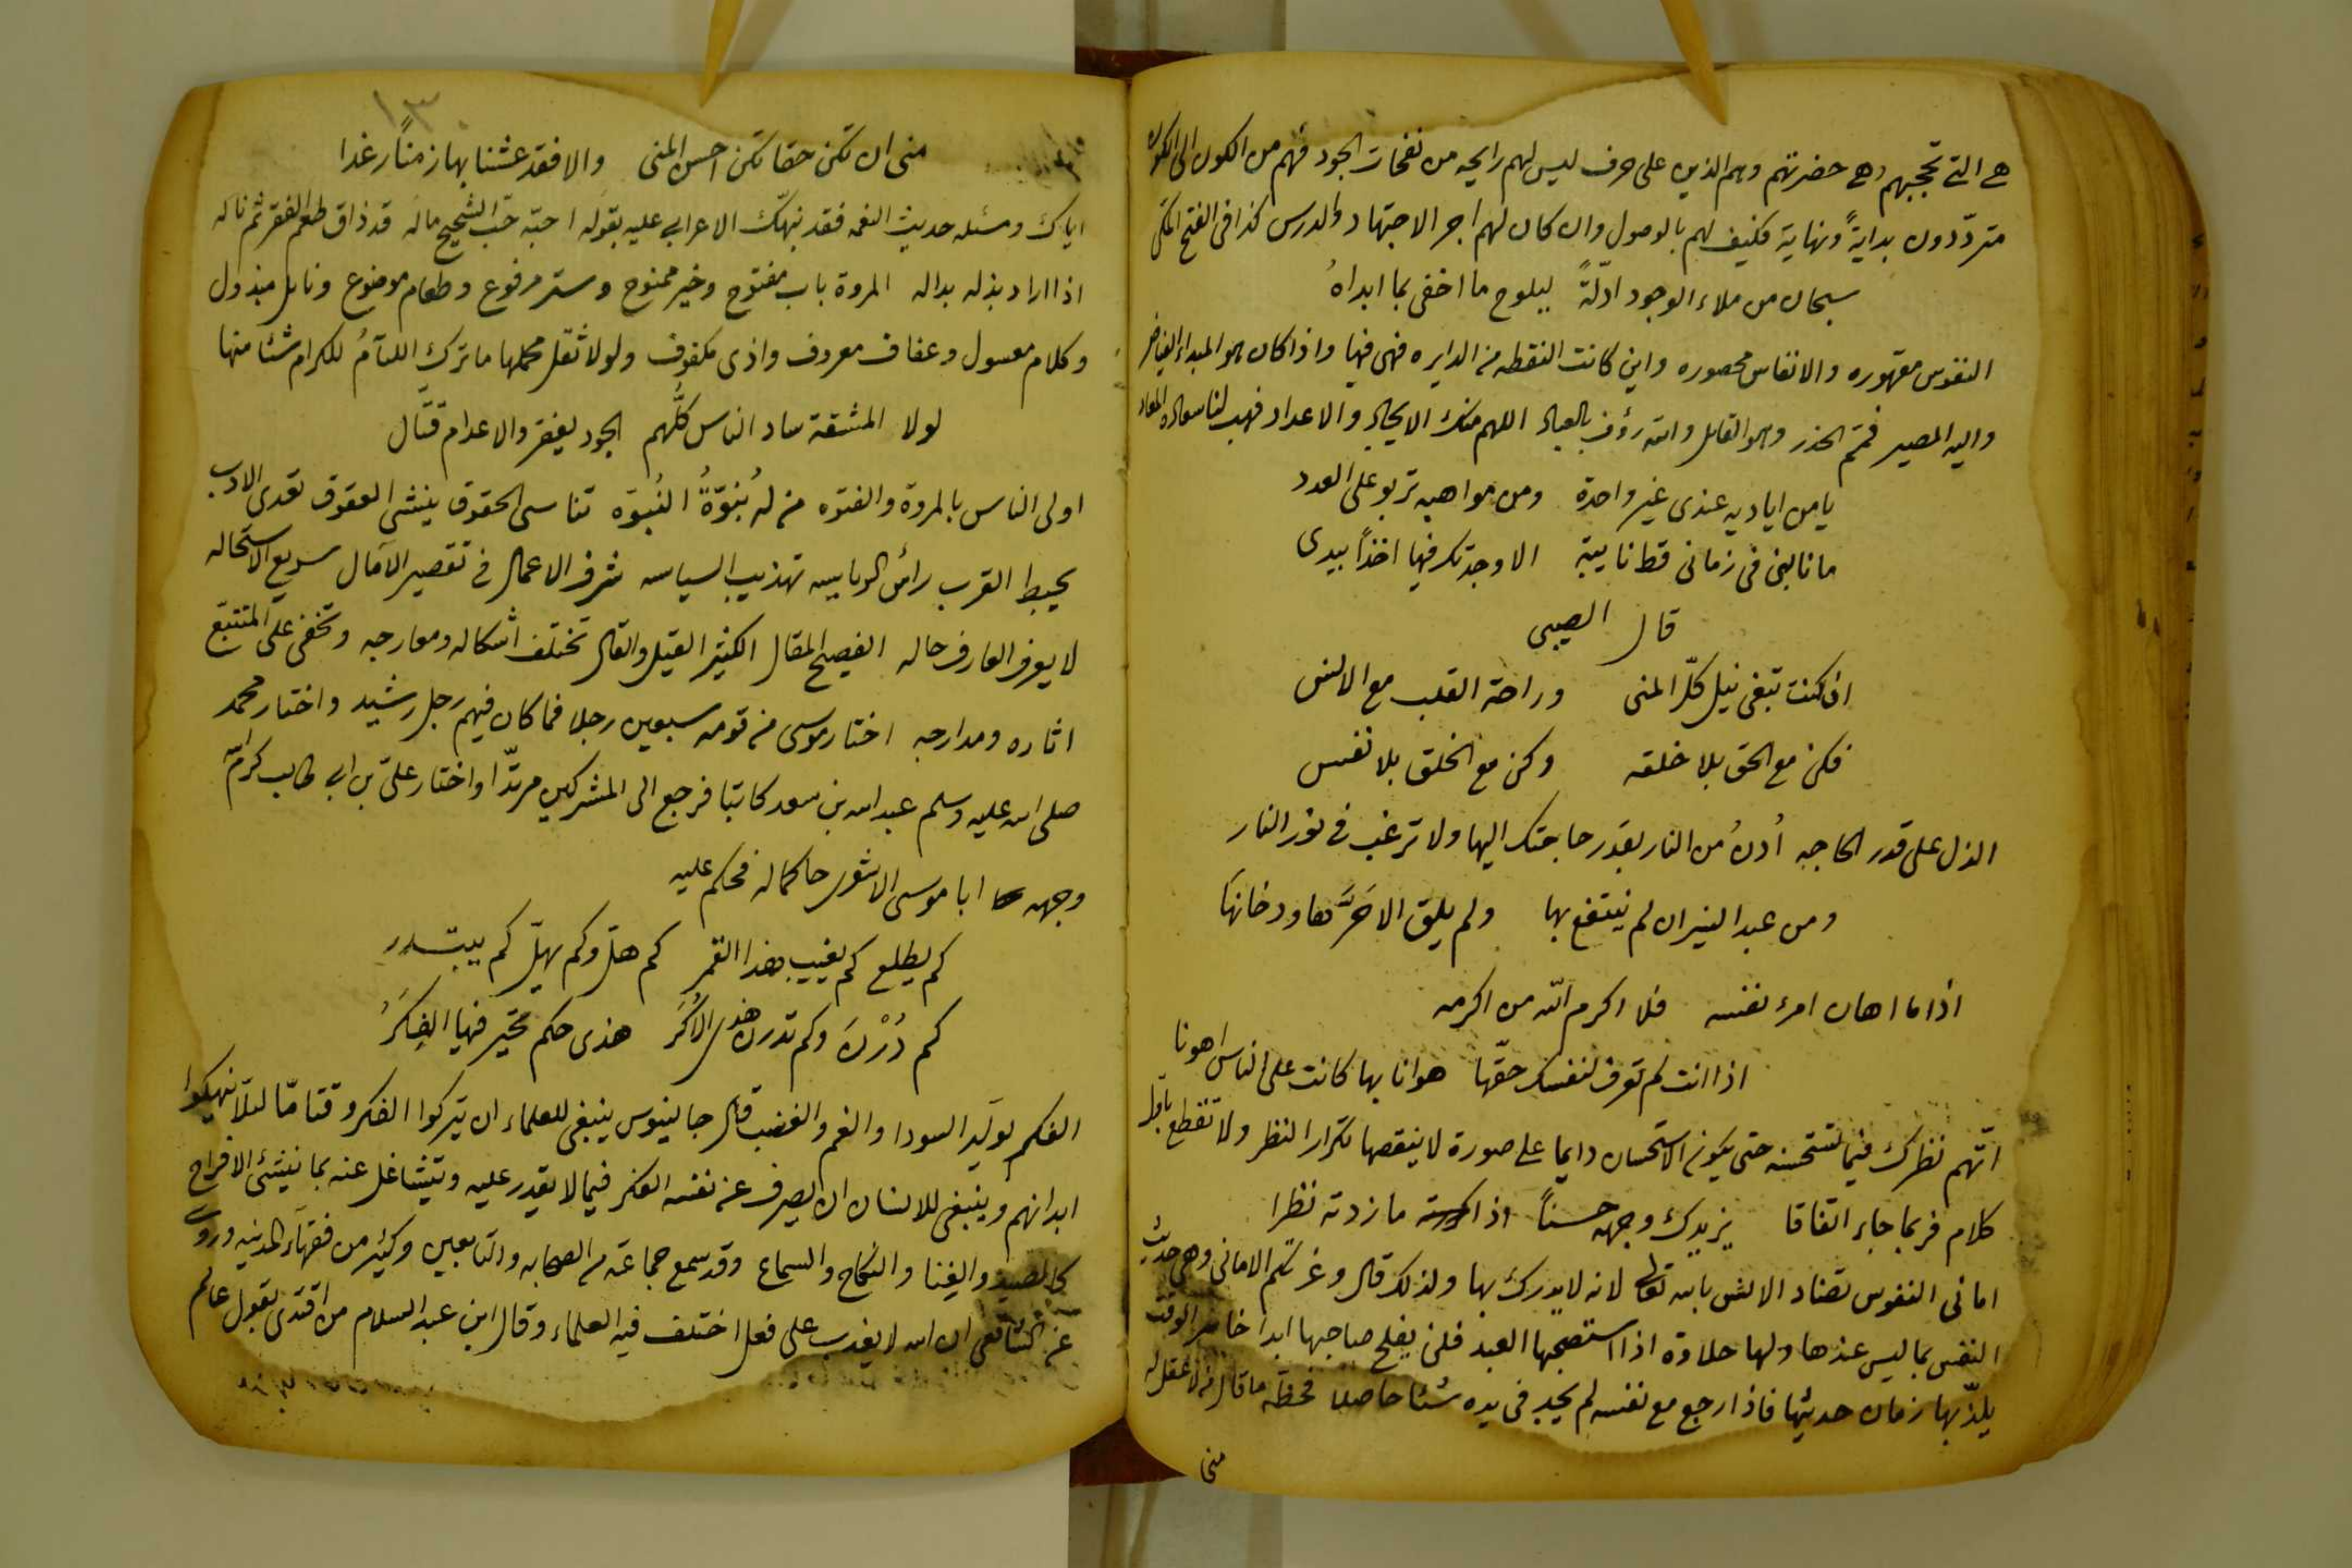 هي التي تحجبهم وهي حضرتهم وهم الذين على حرف ليس لهم رايحه من نفحات الجود فهم من الكون الى الكون
متردّدون بدايةً ونهاية فكيف لهم بالوصول وان كان لهم اجر الاجتهاد والدرس كذا فى الفتح المكى
سبحان من ملاء الوجود ادلّةً ليلوح ما اخفى بما ابداهُ
النفوس مقهوره والانفاس محصوره واين كانت النقطه من الدايره فهى فيها واذا كان هو المبداء الفياض
واليه المصير فمم الحذر وهو القايل والله رؤف بالعباد اللهم منك الايجاد والاعداد فهب لنا سعادة المعاد
يا من اياديه عندى غير واحدة ومن مواهبه تربو على العدد
ما نالنى فى زمانى قط نايبة الا وجدتك فيها اخذاً بيدى
قال الصيبى
ان كنت تبغى نيل كلّ المنى وراحة القلب مع الانس
فكن مع الحق بلا خلقه وكن مع الخلق بلا نفس
الذل على قدر الحاجه اُدنُ من النار بقدر حاجتك اليها ولا ترغب فى نور النار
ومن عبد النيران لم ينتفع بها ولم يلق الا حَرَّها ودخانها
اذا ما اهان امرئ نفسه فلا اكرم الله من اكرمه
اذا انت لم تعرف لنفسك حقّها هوانا بها كانت على الناس اهونا
اتّهم نظرك فيما تستحسنه حتى يكون الاستحسان دايما على صورة لا ينقصها تكرار النظر ولا تقطع باول
كلام فربما جاء اتفاقا يزيدك وجهه حسناً اذا ما زدته نظرا
امانى النفوس تضاد الانس بالله تعالى لانه لا يدرك بها ولذلك قال وغرتكم الامانى وهى حديث
النفس بما ليس عندها ولها حلاوة اذا استصحبها العبد فلن يفلح صاحبها ابدا خاسر الوقت
يلذّ بها زمان حديثها فاذا رجع مع نفسه لم يجد فى يده شئا حاصلا فحظّه ما قال من لا عقل له
منى
١٣
منى ان تكن حقا تكن احسن المنى والا فقد عشنا بها زمناً رغدا
اياك ومسئله حديث النعمه فقد نبهّك الاعرابي عليه بقوله احبّه حبّ الشحيح ماله قد ذاق طعم الفقر ثم ناله
اذا اراد بذله بداله المروة باب مفتوح وخير ممنوح وستر مرفوع وطعام موضوع ونايل مبذول
وكلام معسول وعفاف معروف واذى مكفوف ولولا ثقل محملها ما ترك اللئآمُ للكرام شئا منها
لولا المشقة ساد الناس كلّهم الجود يفقر والاعدام قتّال
اولى الناس بالمروة والفتوه من له بُنوّةُ النُبوّة تناسى الحقوق ينشى العقوق تعدى الادب
يحبط القرب رأس الرياسه تهذيب السياسه شرف الاعمال فى تقصير الآمال سريع الاستحاله
لا يعرف العارف حاله الفصيح المقال الكثير القيل والقال تختلف اشكاله ومعارجه وتخفى على المتتبّع
اثاره ومدارجه اختار موسى من قومه سبعين رجلا فما كان فيهم رجل رشيد واختار محمد
صلى الله عليه وسلم عبد الله بن سعد كاتبا فرجع الى المشركين مرتدّا واختار علىّ بن ابى طالب كرّم الله
وجهه ابا موسى الاشعرى حاكما له فحكم عليه
كم يطلع كم يغيب هذا القمر كم هلّ وكم يهلّ كم يبتدر
كم دُرْنَ وكم تدرن هذى الاُكَرُ هذى حكم تحيّر فيها الفِكَرُ
الفكر يولّد السودا والغم والغضب قال جالينوس ينبغى للعلماء ان يتركوا الفكر وقتا مّا لئلّا ينهكوا
ابدانهم وينبغى للانسان ان يصرف عن نفسه الفكر فيما لا يقدر عليه ويتشاغل عنه بما ينشئ الافراح
كالصيد والغنا والنكاح والسماع وقد سمع جماعة من الصحابه والتابعين وكثير من فقهآء المدينه وروى
عن الشافعى ان الله لا يعذب على فعل اختلف فيه العلماء وقال ابن عبد السلام من اقتدى بقول عالم